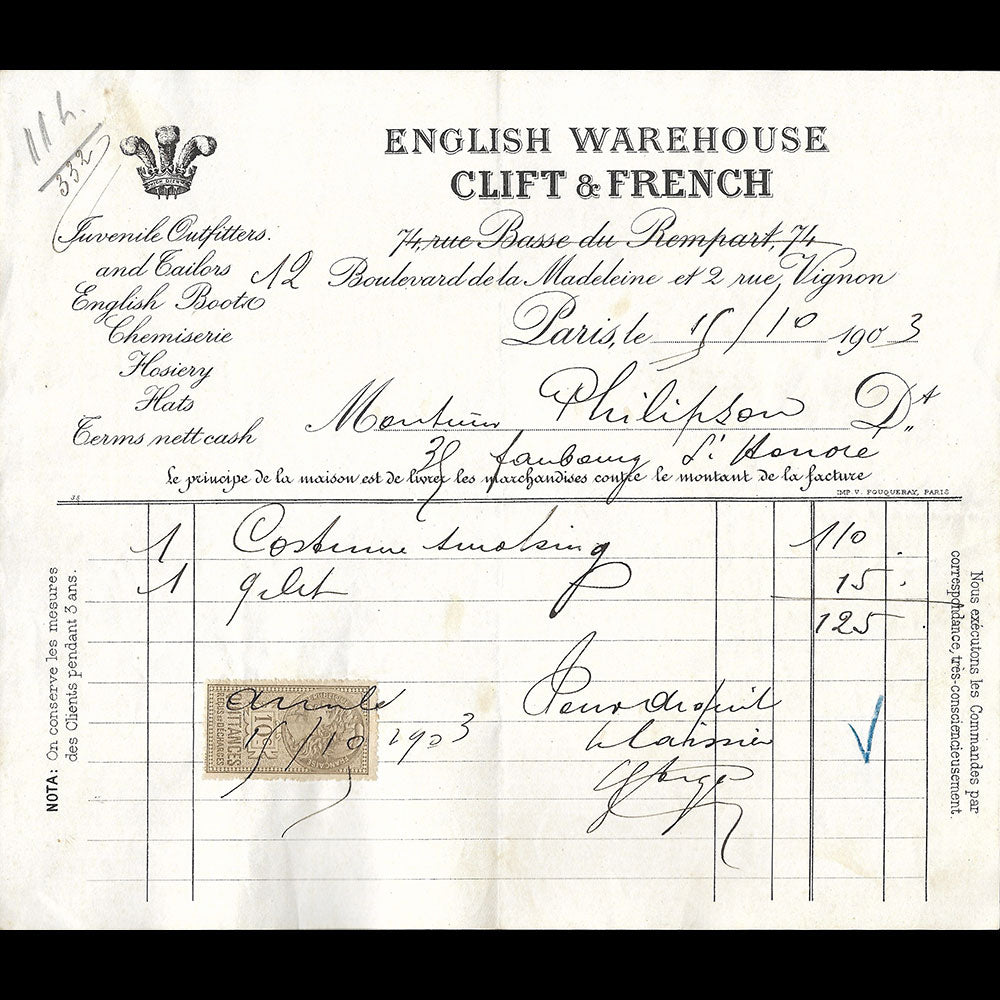 11 h.
332
ENGLISH WAREHOUSE
CLIFT & FRENCH
74, rue Basse du Rempart, 74
12 Boulevard de la Madeleine et 2 rue Vignon
Paris, le 15/10 1903
Juvenile Outfitters.
and Tailors
English Boots
Chemiserie
Hosiery
Hats
Terms nett cash
Monsieur Philipson Dt
35 faubourg St Honoré
Le principe de la maison est de livrer les marchandises contre le montant de la facture
38
IMP V. FOUQUERAY, PARIS
1 Costume smoking 110
1 gilet 15
125
Pour acquit
le caissier
annulé
15/10 1903
QUITTANCES
REÇUS ET DÉCHARGES
NOTA: On conserve les mesures
des Clients pendant 3 ans.
Nous exécutons les Commandes par
correspondance, très-consciencieusement.